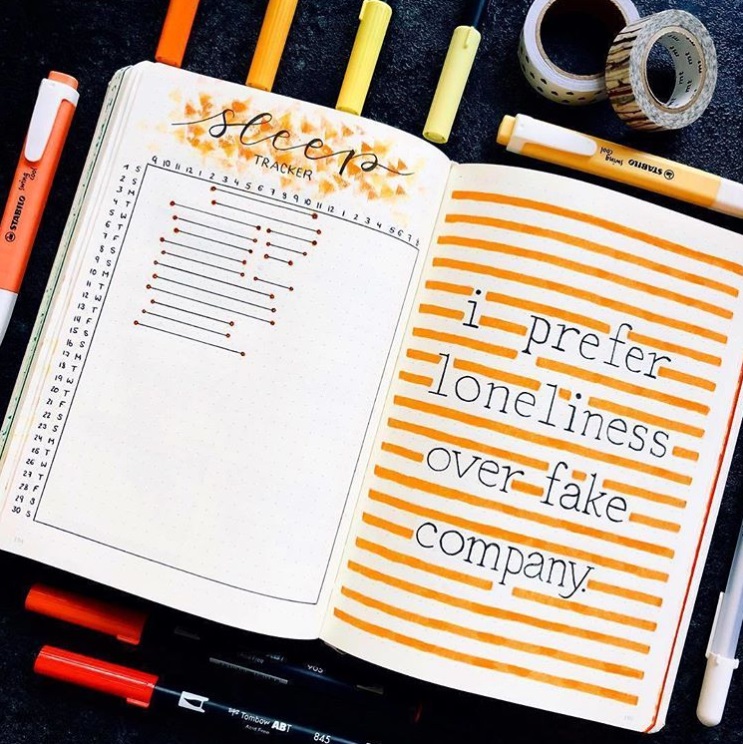 sleep
TRACKER
9 10 11 12 1 2 3 4 5 6 7 8 9 10 11 12 1 2 3 4 5 6 7 8
1 S
2 S
3 M
4 T
5 W
6 T
7 F
8 S
9 S
10 M
11 T
12 W
13 T
14 F
15 S
16 S
17 M
18 T
19 W
20 T
21 F
22 S
23 S
24 M
25 T
26 W
27 T
28 F
29 S
30 S
i prefer
loneliness
over fake
company.
STABILO swing cool
STABILO swing cool
mt
Tombow ABT 845